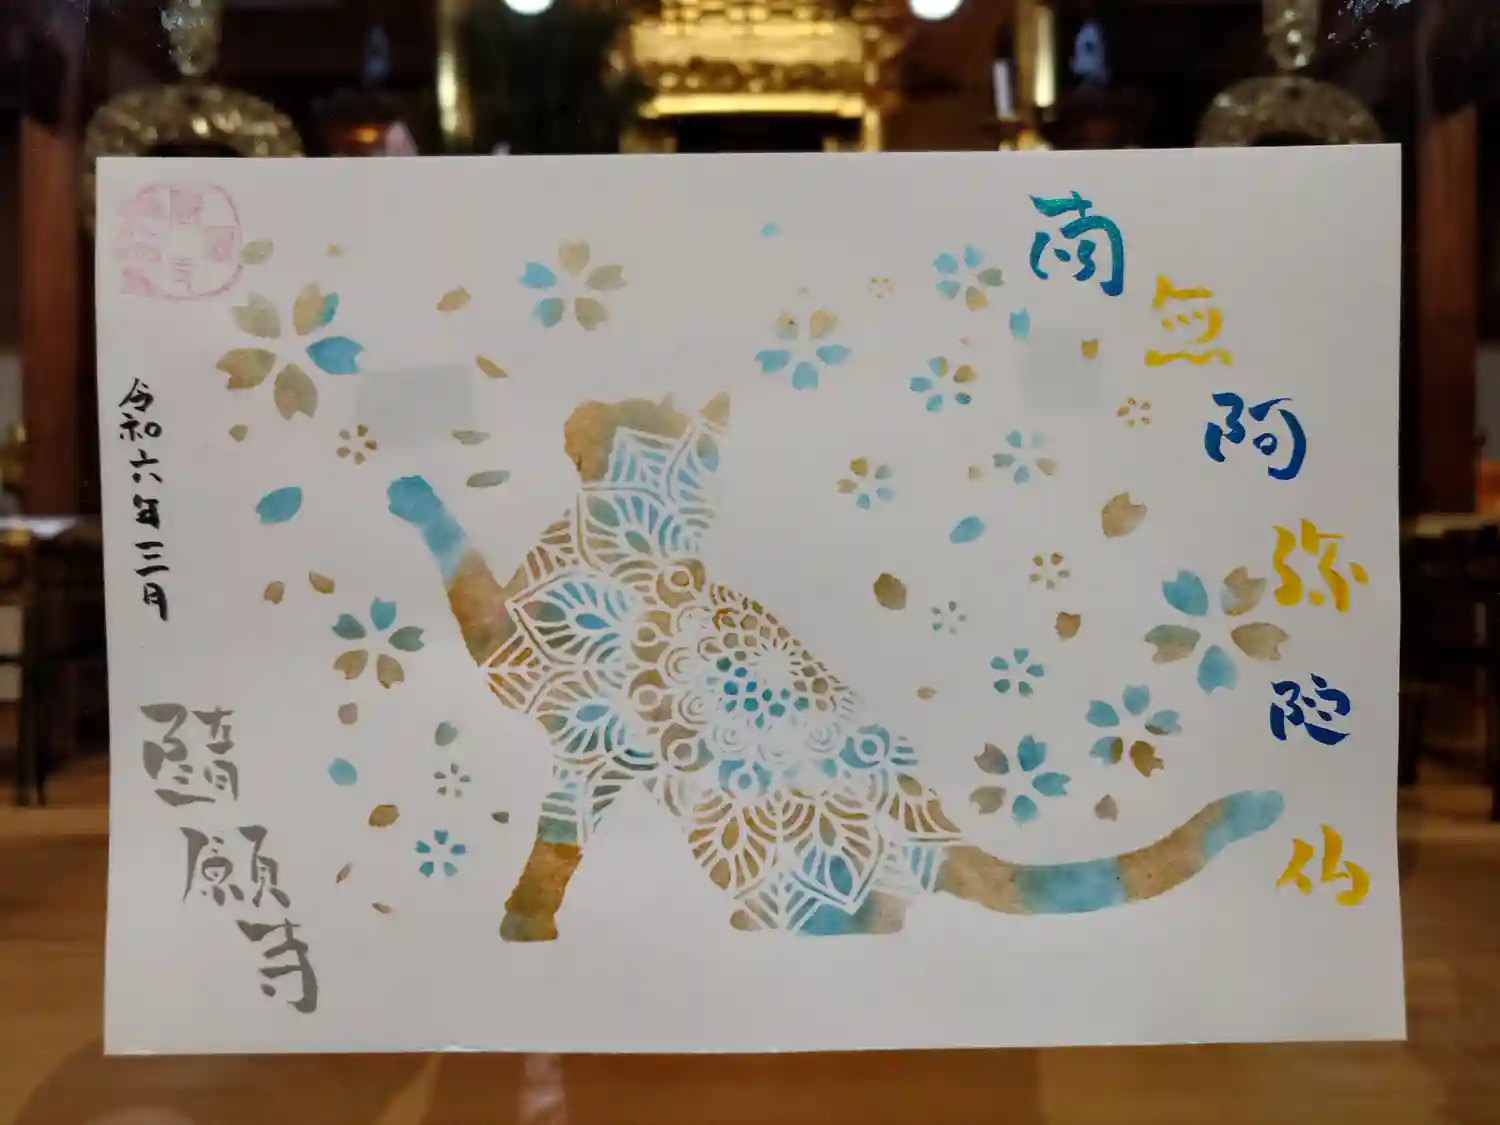 南無阿弥陀仏
令和六年三月
随願寺